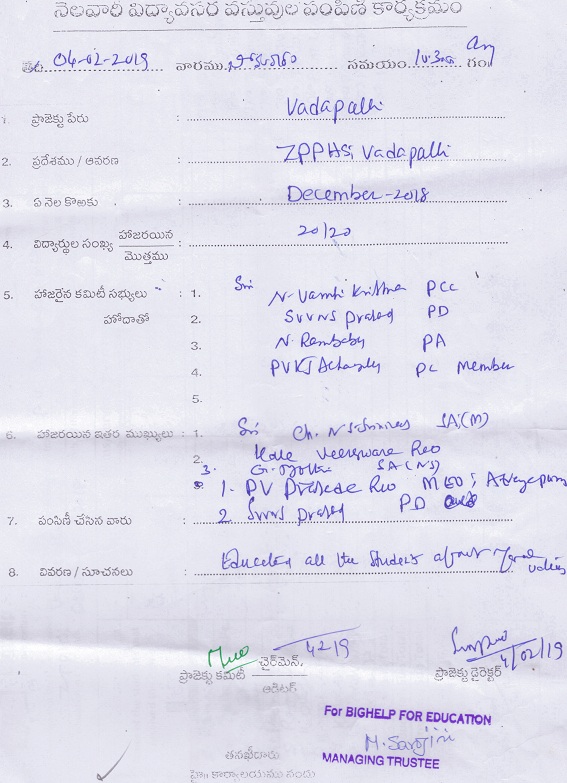 నెలవారి విద్యావసర వస్తువుల పంపిణి కార్యక్రమం
తేది. 04-02-2019 వారము సమయం 10:30 am గం॥
1. ప్రాజెక్టు పేరు : Vadapalli
2. ప్రదేశము / ఆవరణ : ZPPHS, Vadapalli
3. ఏ నెల కొఱకు : December-2018
4. విద్యార్థుల సంఖ్య హాజరయిన / మొత్తము : 20/20
5. హాజరైన కమిటీ సభ్యులు : 1. Sri N. Vamsi Krishna PCC
హోదాతో 2. SVVNS Prasad PD
3. N. Rambabu PA
4. PVKJ Acharyly PC Member
5.
6. హాజరయిన ఇతర ముఖ్యులు : 1. Sri Ch. N. Srinivas SA(M)
2. Kale Veeraswara Rao
3. G. Jyothi SA(NS)
1. PV Prasada Rao MEO, Atreyapuram
7. పంపిణీ చేసిన వారు : 2. SVVNS Prasad PD
8. వివరణ / సూచనలు : Educated all the students about moral values
4/2/19
4/02/19
ప్రాజెక్టు కమిటీ చైర్మెన్. ప్రాజెక్టు డైరెక్టర్
ఆడిటర్
For BIGHELP FOR EDUCATION
M. Sarojini
తనఖీదారు MANAGING TRUSTEE
హె॥ కార్యాలయము నందు